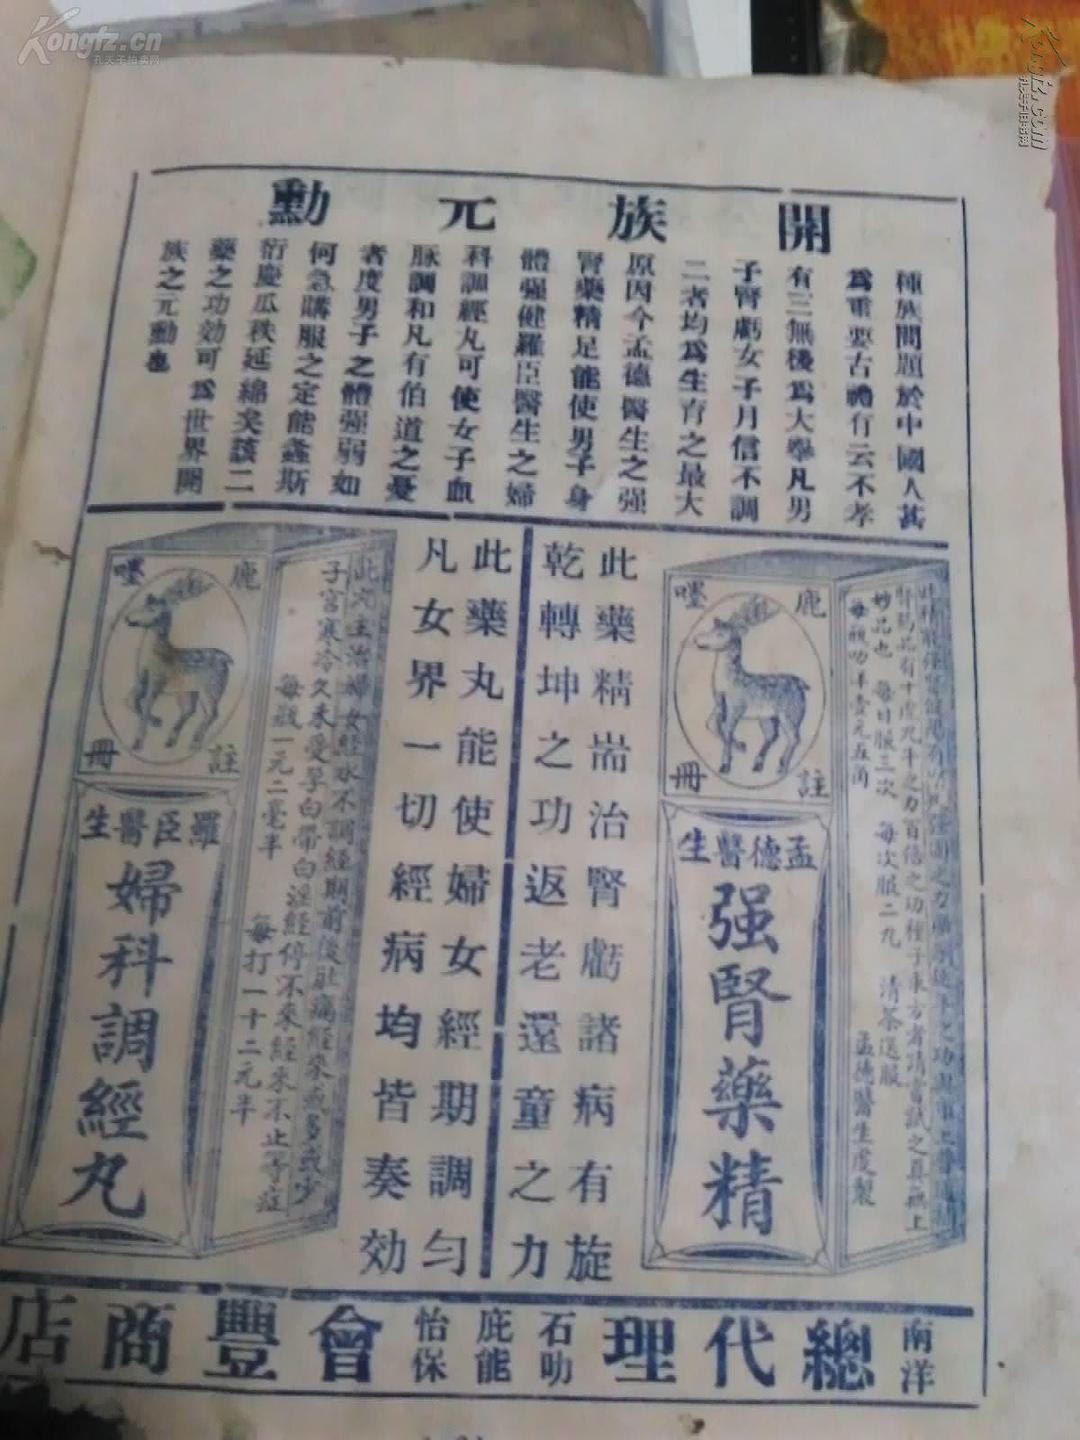 Kongfz.cn
孔夫子拍卖网
開族元勳
種族問題於中國人甚
爲重要古禮有云不孝
有三無後爲大舉凡男
子腎虧女子月信不調
二者均爲生育之最大
原因今孟德醫生之强
腎藥精足能使男子身
體强健羅臣醫生之婦
科調經丸可使女子血
脉調和凡有伯道之憂
者度男子之體强弱如
何急購服之定能螽斯
衍慶瓜秩延綿矣該二
藥之功効可爲世界開
族之元勳也
鹿嘜
註冊
孟德醫生
强腎藥精
妙品也 每日服三次 每次服二丸 清茶送服
每瓶叻羊壹元五角 孟德醫生虔製
此藥精耑治腎虧諸病有旋
乾轉坤之功返老還童之力
此藥丸能使婦女經期調匀
凡女界一切經病均皆奏効
鹿嘜
註冊
羅臣醫生
婦科調經丸
此丸主治婦女經水不調經期前後肚痛經來或多或少
子宮寒冷久未受孕白帶白淫經停不來經來不止等症
每瓶一元二毫半 每打一十二元半
南洋
總代理
石叻
庇能
怡保
會豐商店